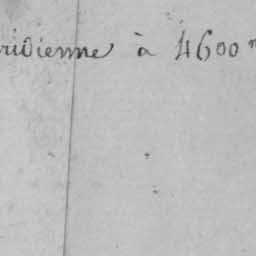 ridienne à 4600 m